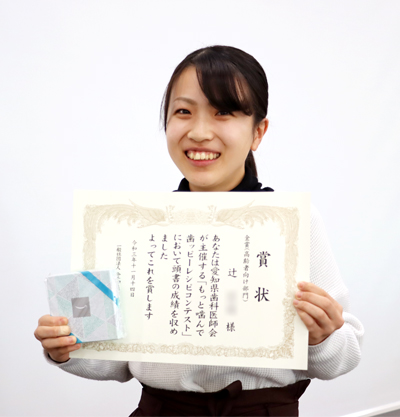 賞状
金賞(高齢者向け部門)
辻 様
あなたは愛知県歯科医師会
が主催する「もっと噛んで
歯ッピーレシピコンテスト」
において頭書の成績を収め
ました
よってこれを賞します
令和三年十一月十四日